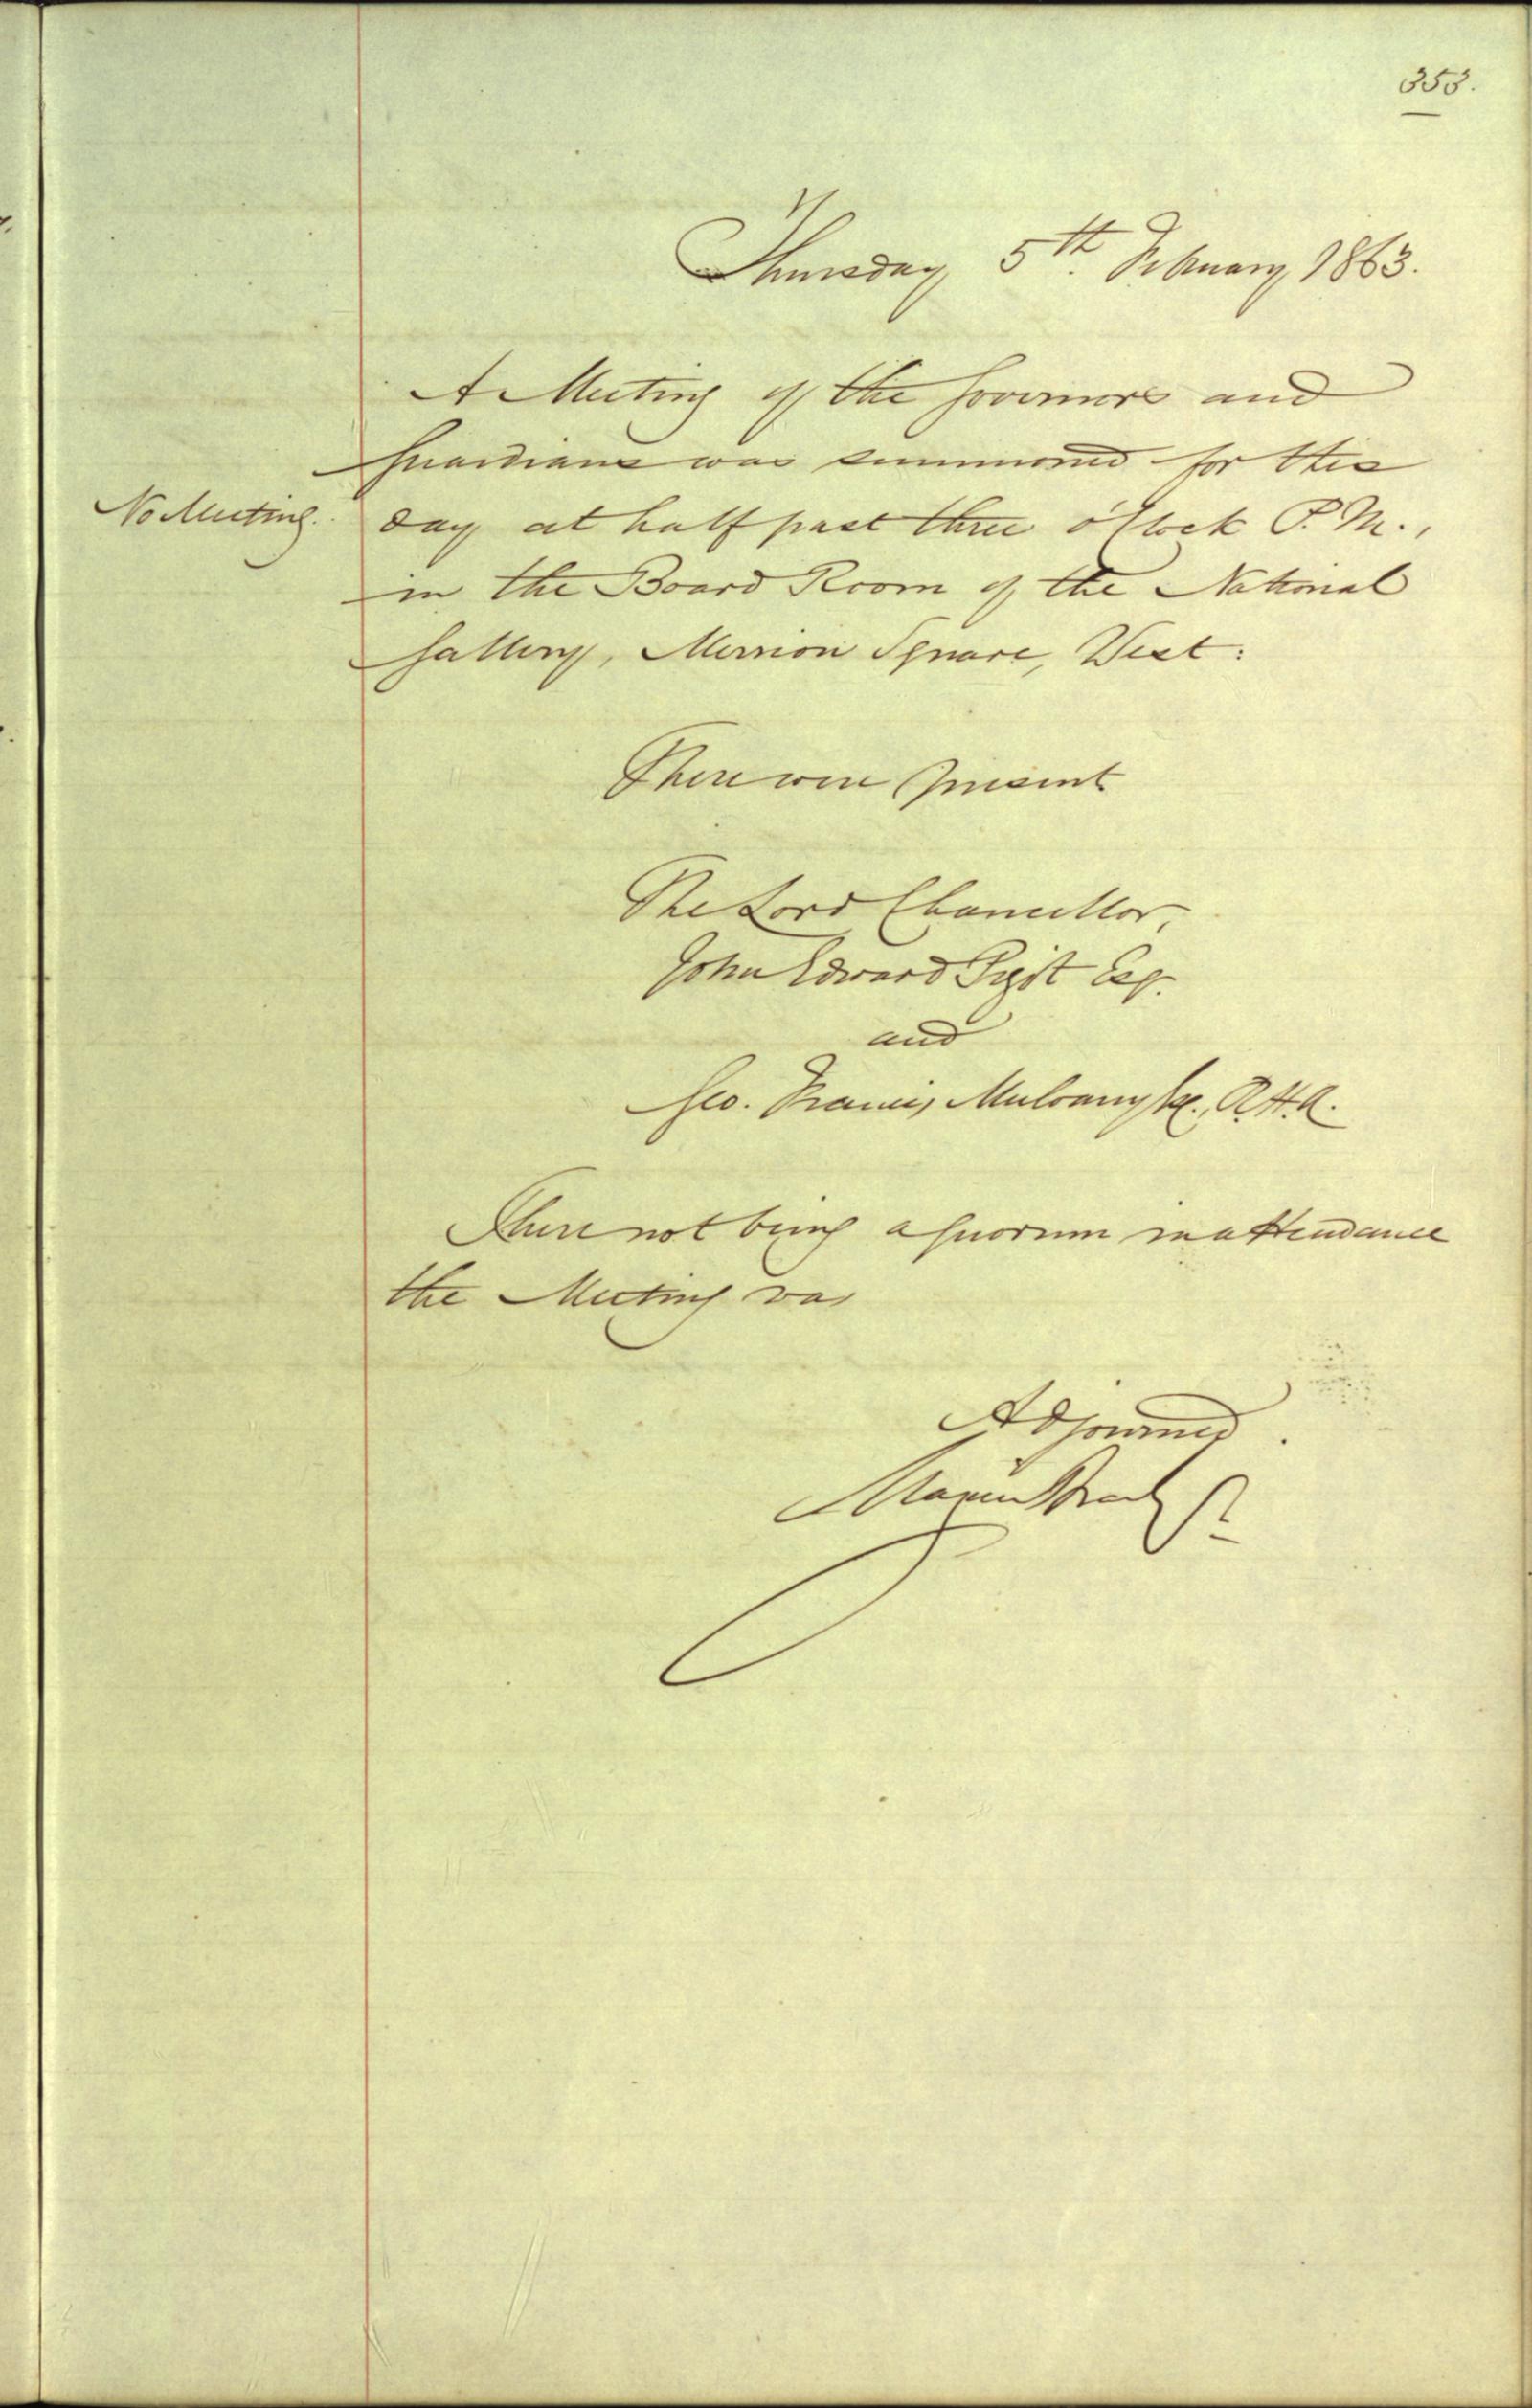 353.
Thursday, 5th. February, 1863.
A Meeting of the Governors and
Guardians was summoned for this
No Meeting. day at half past three o'Clock P. M.,
in the Board Room of the National
Gallery, Merrion Square, West:
There were present
The Lord Chancellor,
John Edward Pigot Esq.
and
Geo. Francis Mulvany Esq., R.H.A.
There not being a quorum in attendance
the Meeting was
Adjourned.